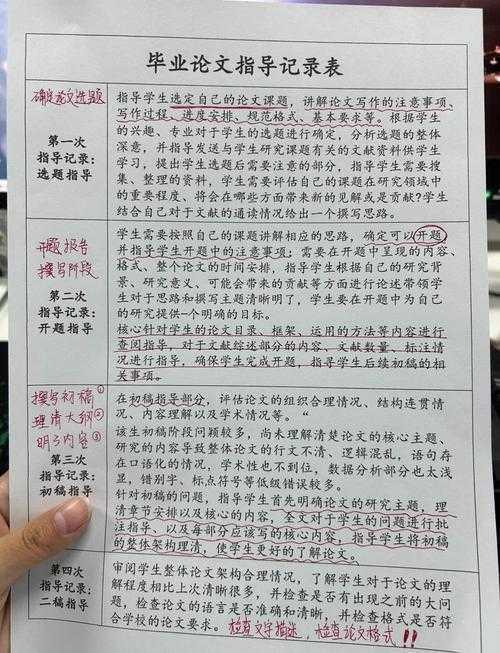 毕业论文指导记录表
确定论文选题
第一次
指导记录：
选题指导
指导学生选定自己的论文课题，讲解论文写作的注意事项、
写作过程、进度安排、规范格式、基本要求等。根据学生
的兴趣、专业对于学生的选题进行确定，分析选题的整体
深意，并指导发送与学生研究课题有关的文献资料供学生
学习，提出学生选题后需要注意的部分，指导学生需要搜
集、整理的资料，学生需要评估自己的课题在研究领域中
的重要程度、将会在哪些方面带来新的见解或是贡献?学生
结合自己对于文献的通读情况给出一个撰写思路。
开题报告
撰写阶段
第二次
指导记录：
开题指导
学生需要按照自己的课题讲解相应的思路，确定可以开题，
并指导学生开题中的注意事项；需要在开题中呈现的内容、
格式、整个论文的时间安排，指导学生根据自己的研究背
景、研究意义，可能会带来的贡献等方面进行论述带领学
生对于思路和撰写主题清晰明了，学生要在开题中为自己
的研究提供一个明确的目标。
核心针对学生的论文目录、框架、运用的方法等内容进行
查阅指导，对于文献综述部分的内容、文献数量、标注情
况进行指导，确保学生完成开题，指导学生后续初稿的相
关事项。
撰写初稿①
理清大纲②
明了内容③
第三次
指导记录：
初稿指导
在初稿指导部分，评估论文的组织合理情况、结构连贯情
况、内容理解以及学术情况等。“
该生初稿阶段问题较多，尚未理解清楚论文的核心主题、
研究的内容导致整体论文的行文不清、逻辑混乱，语句存
在口语化的情况，学术性也不到位，数据分析部分也太浅
显，错别字、标点符号等低级错误较多。
针对初稿的问题，指导学生首先明确论文的研究主题，理
清章节安排以及核心的内容，全文对于学生的问题进行批
注指导、以及每部分应该写的核心内容，指导学生将初稿
的整体架构理清，使学生更好的了解论文。
第四次
指导记录：
二稿指导
审阅学生整体论文架构合理情况，了解学生对于论文的理
解程度相比上次清晰很多，并检查是否有出现之前的大问
题，检查论文的语言是否准确和清晰，并检查格式是否符
合学校的论文要求。检查文字描述，检查论文格式!!